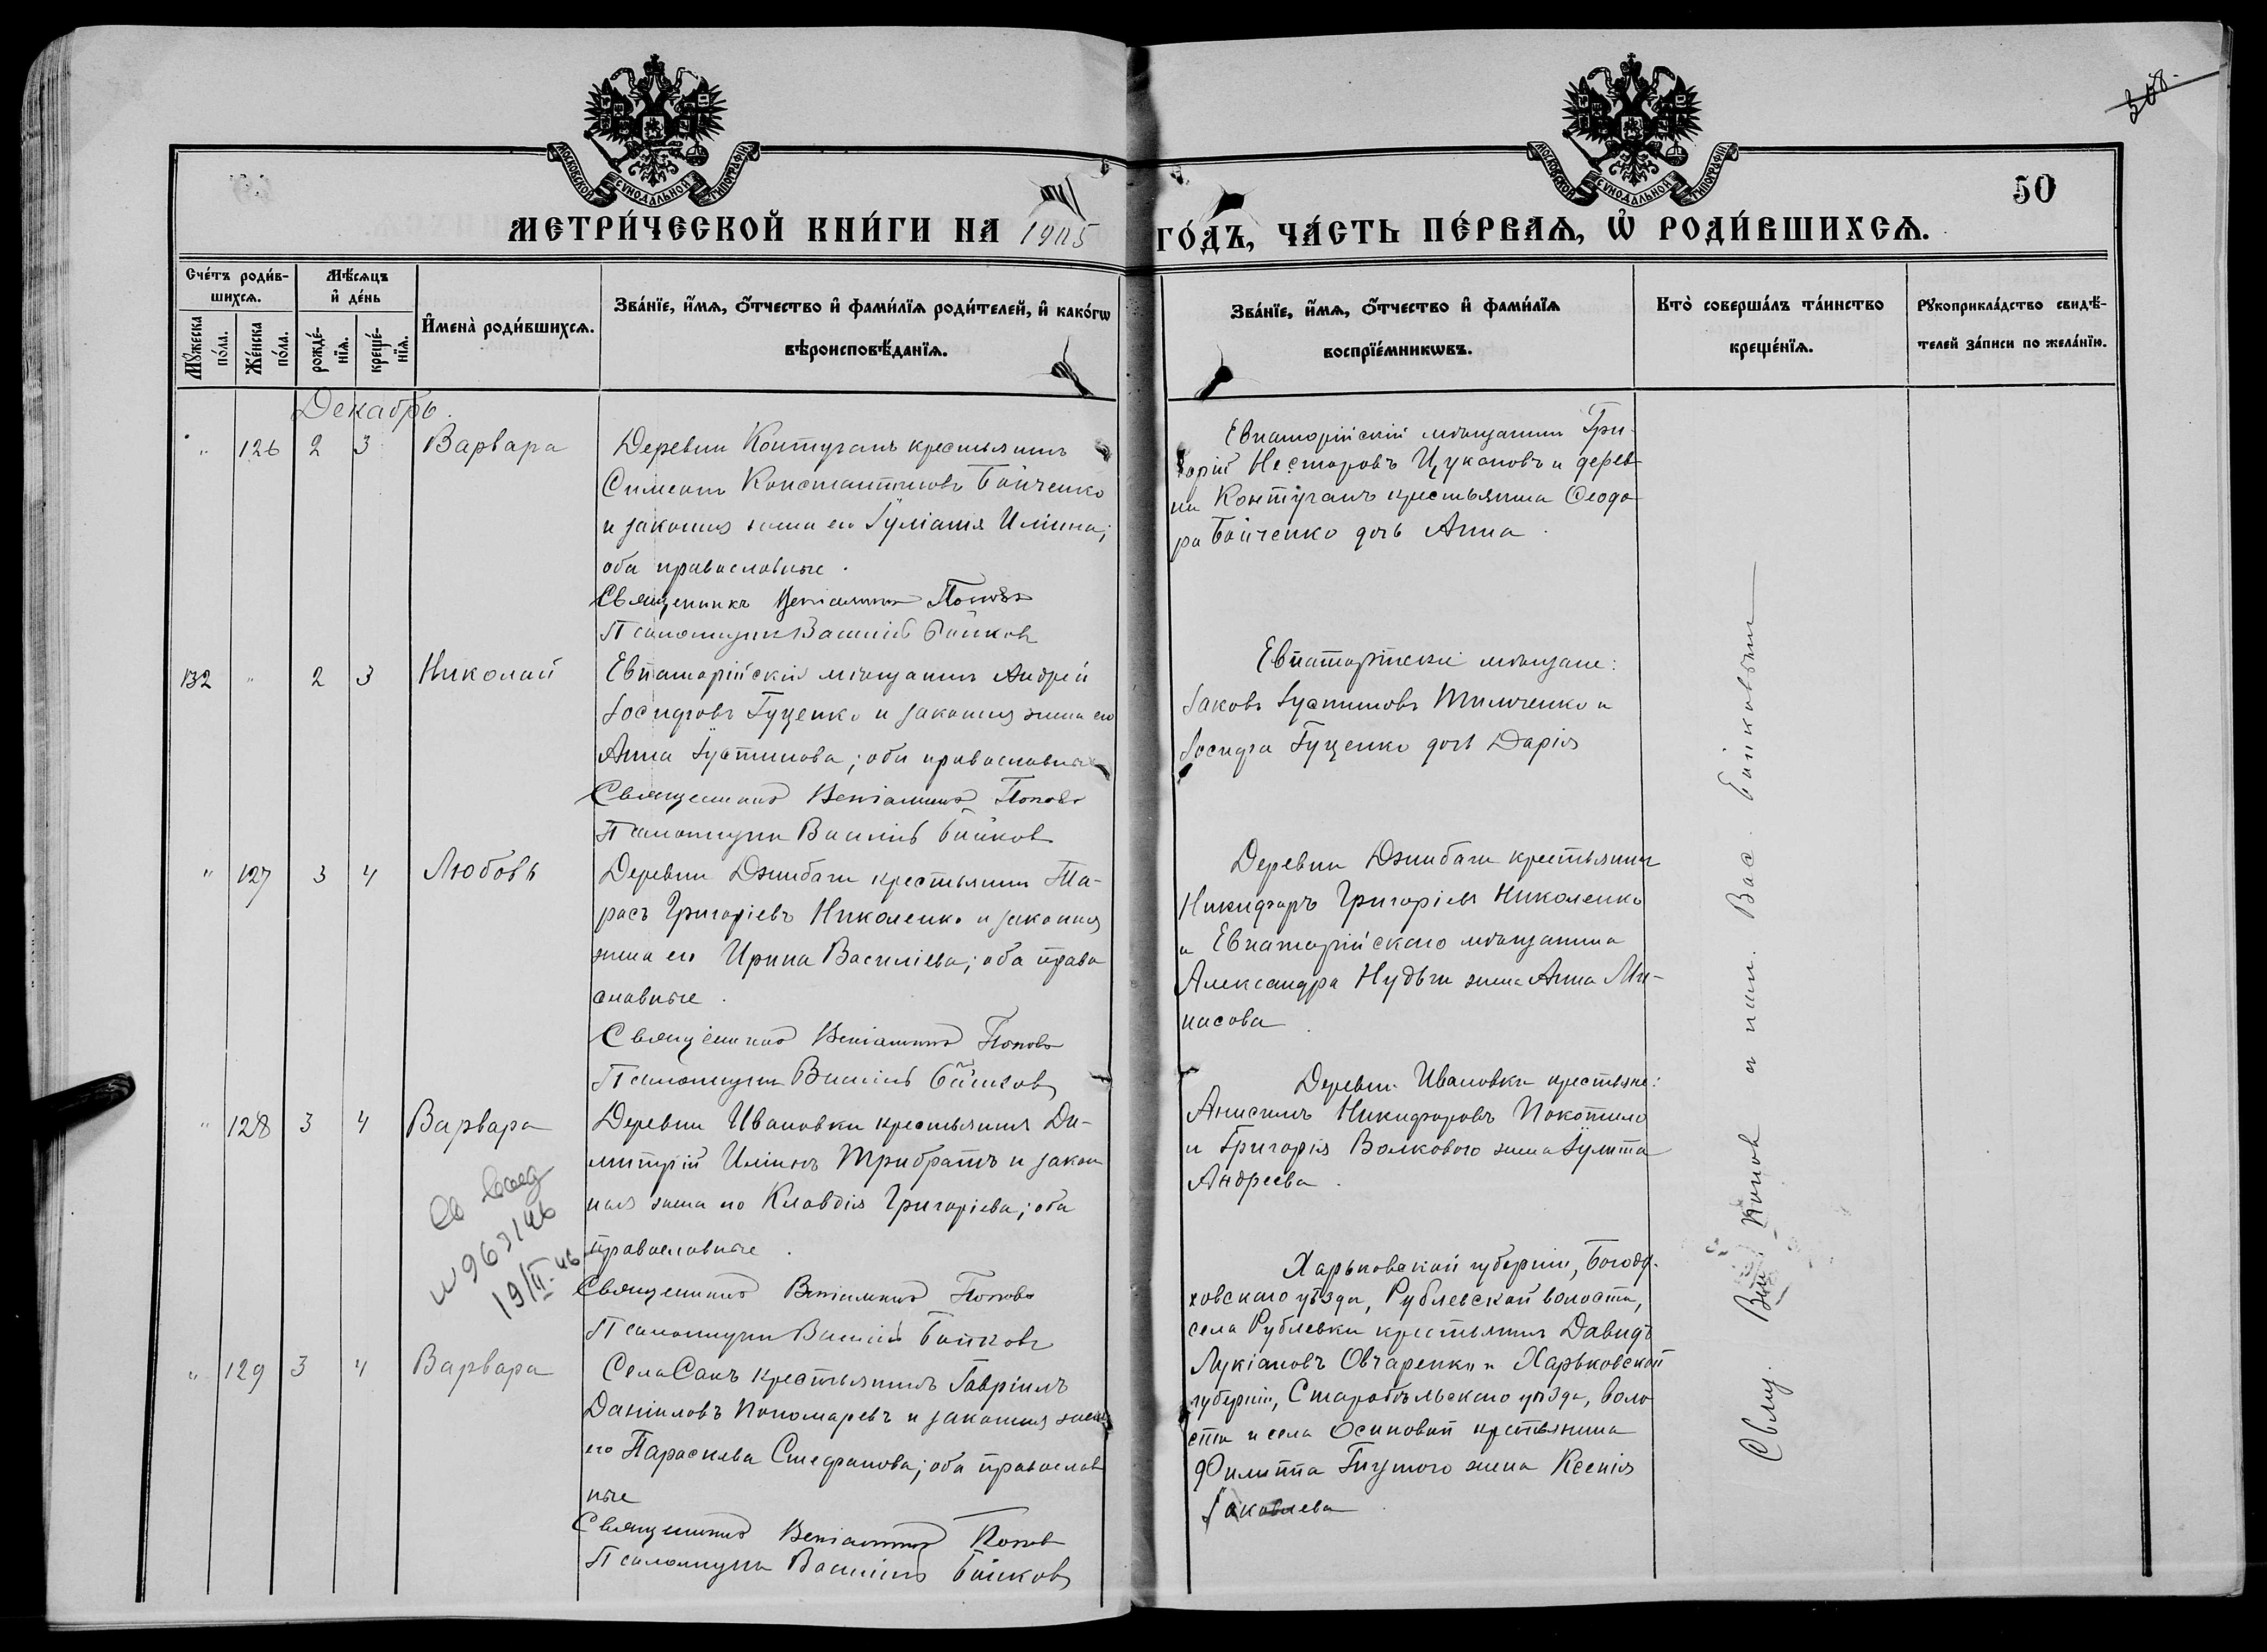 МОСКОВСКОЙ СѴНОДАЛЬНОЙ ТИПОГРАФІИ
МОСКОВСКОЙ СѴНОДАЛЬНОЙ ТИПОГРАФІИ
50
МЕТРИ́ЧЕСКОЙ КНИ́ГИ НА 1905 ГО́ДЪ, ЧА́СТЬ ПЕ́РВАЯ, Ѡ҆ РОДИ́ВШИХСЯ.
Сче́тъ роди́в-
шихся.
Мꙋ́жеска
по́ла.
Же́нска
по́ла.
Мѣ́сяцъ
и҆ де́нь
рожде́-
нїя.
креще́-
нїя.
И҆мена̀ роди́вшихся.
Зва́нїе, и҆́мя, ѻ҆́тчество и҆ фами́лїя роди́телей, и҆ како́гѡ
вѣроисповѣ́данїя.
Зва́нїе, и҆́мя, ѻ҆́тчество и҆ фами́лїя
воспрїе́мникѡвъ.
Кто̀ соверша́лъ та́инство
креще́нїя.
Рꙋкоприкла́дство свидѣ́-
телей за́писи по жела́нїю.
Декабрь.
" 126 2 3 Варвара
Деревни Контуганъ крестьянинъ
Симеонъ Константиновъ Бойченко
и законная жена его Іуліанія Иліина;
оба православные.
Священникъ Веніаминъ Поповъ
Псаломщикъ Василій Байковъ
Евпаторійскій мѣщанинъ Гри-
горій Несторовъ Цукановъ и дерев-
ни Контуганъ крестьянина Ѳеодо-
ра Бойченко дочь Анна.
132 " 2 3 Николай
Евпаторійскій мѣщанинъ Андрей
Іосифовъ Гуценко и законная жена его
Анна Іустинова; оба православные
Священникъ Веніаминъ Поповъ
Псаломщикъ Василій Байковъ
Евпаторійскіе мѣщане:
Іаковъ Іустиновъ Тимченко и
Іосифа Гуценко дочь Дарія
" 127 3 4 Любовь
Деревни Джабаги крестьянинъ Та-
расъ Григоріевъ Николенко и законная
жена его Ирина Василіева; оба право
славные.
Священникъ Веніаминъ Поповъ
Псаломщикъ Василій Байковъ
Деревни Джабаги крестьянинъ
Никифоръ Григоріевъ Николенко
и Евпаторійскаго мѣщанина
Александра Нудьги жена Анна Ми-
насова
" 128 3 4 Варвара
Деревни Ивановки крестьянинъ Ди-
митрій Иліинъ Трибратъ и закон
ная жена его Клавдія Григоріева; оба
православные.
Священникъ Веніаминъ Поповъ
Псаломщикъ Василій Байковъ
Деревни Ивановки крестьяне:
Анисимъ Никифоровъ Покотило
и Григорія Волкового жена Іулитта
Андреева.
19/II-46
" 129 3 4 Варвара
Села Сакъ крестьянинъ Гавріилъ
Даніиловъ Пономаревъ и законная жена
его Параскева Стефанова; оба православ
ные
Священникъ Веніаминъ Поповъ
Псаломщикъ Василій Байковъ
Харьковской губерніи, Богоду-
ховскаго уѣзда, Рублевской волости,
села Рублевки крестьянинъ Давидъ
Лукіановъ Овчаренко и Харьковской
губерніи, Старобѣльскаго уѣзда, воло
сти и села Осиновой крестьянина
Филиппа Гнутого жена Ксенія
Іаковлева.
Свящ. Вен. Попов и псал. Вас. Байковым